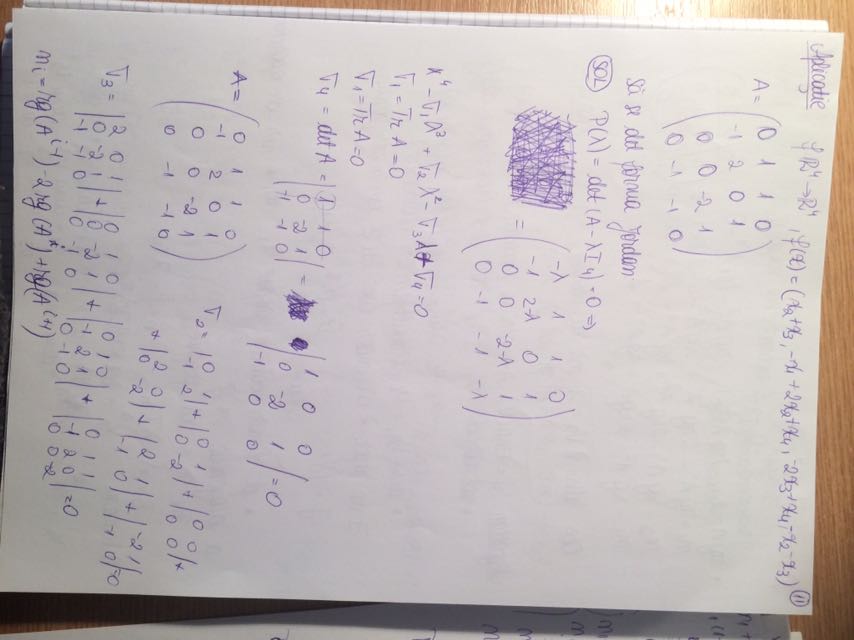 Aplicație f:R⁴→R⁴, f(x) = (x₂+x₃, -x₁+2x₂+x₄, -2x₃+x₄, -x₂-x₃) 11
A = ( 0 1 1 0
-1 2 0 1
0 0 -2 1
0 -1 -1 0 )
Să se det forma Jordan
SOL P(λ) = det (A - λI₄) = 0 ⇒
= ( -λ 1 1 0
-1 2-λ 0 1
0 0 -2-λ 1
0 -1 -1 -λ )
λ⁴ - σ₁λ³ + σ₂λ² - σ₃λ + σ₄ = 0
σ₁ = Tr A = 0
σ₁ = Tr A = 0
σ₄ = det A = | 1 1 0
0 -2 1
-1 -1 0 | = | 1 0 0
0 -2 1
-1 0 0 | = 0
A = ( 0 1 1 0
-1 2 0 1
0 0 -2 1
0 -1 -1 0 )
σ₂ = | 0 1
-1 2 | + | 0 1
0 -2 | + | 0 0
0 0 | +
+ | 2 0
0 -2 | + | 2 1
-1 0 | + | -2 1
-1 0 | = 0
σ₃ = | 2 0 1
0 -2 1
-1 -1 0 | + | 0 1 0
0 -2 1
0 -1 0 | + | 0 1 0
-1 2 1
0 -1 0 | + | 0 1 1
-1 2 0
0 0 -2 | = 0
mᵢ = rg(Aⁱ⁻¹) - 2rg(Aⁱ) + rg(Aⁱ⁺¹)